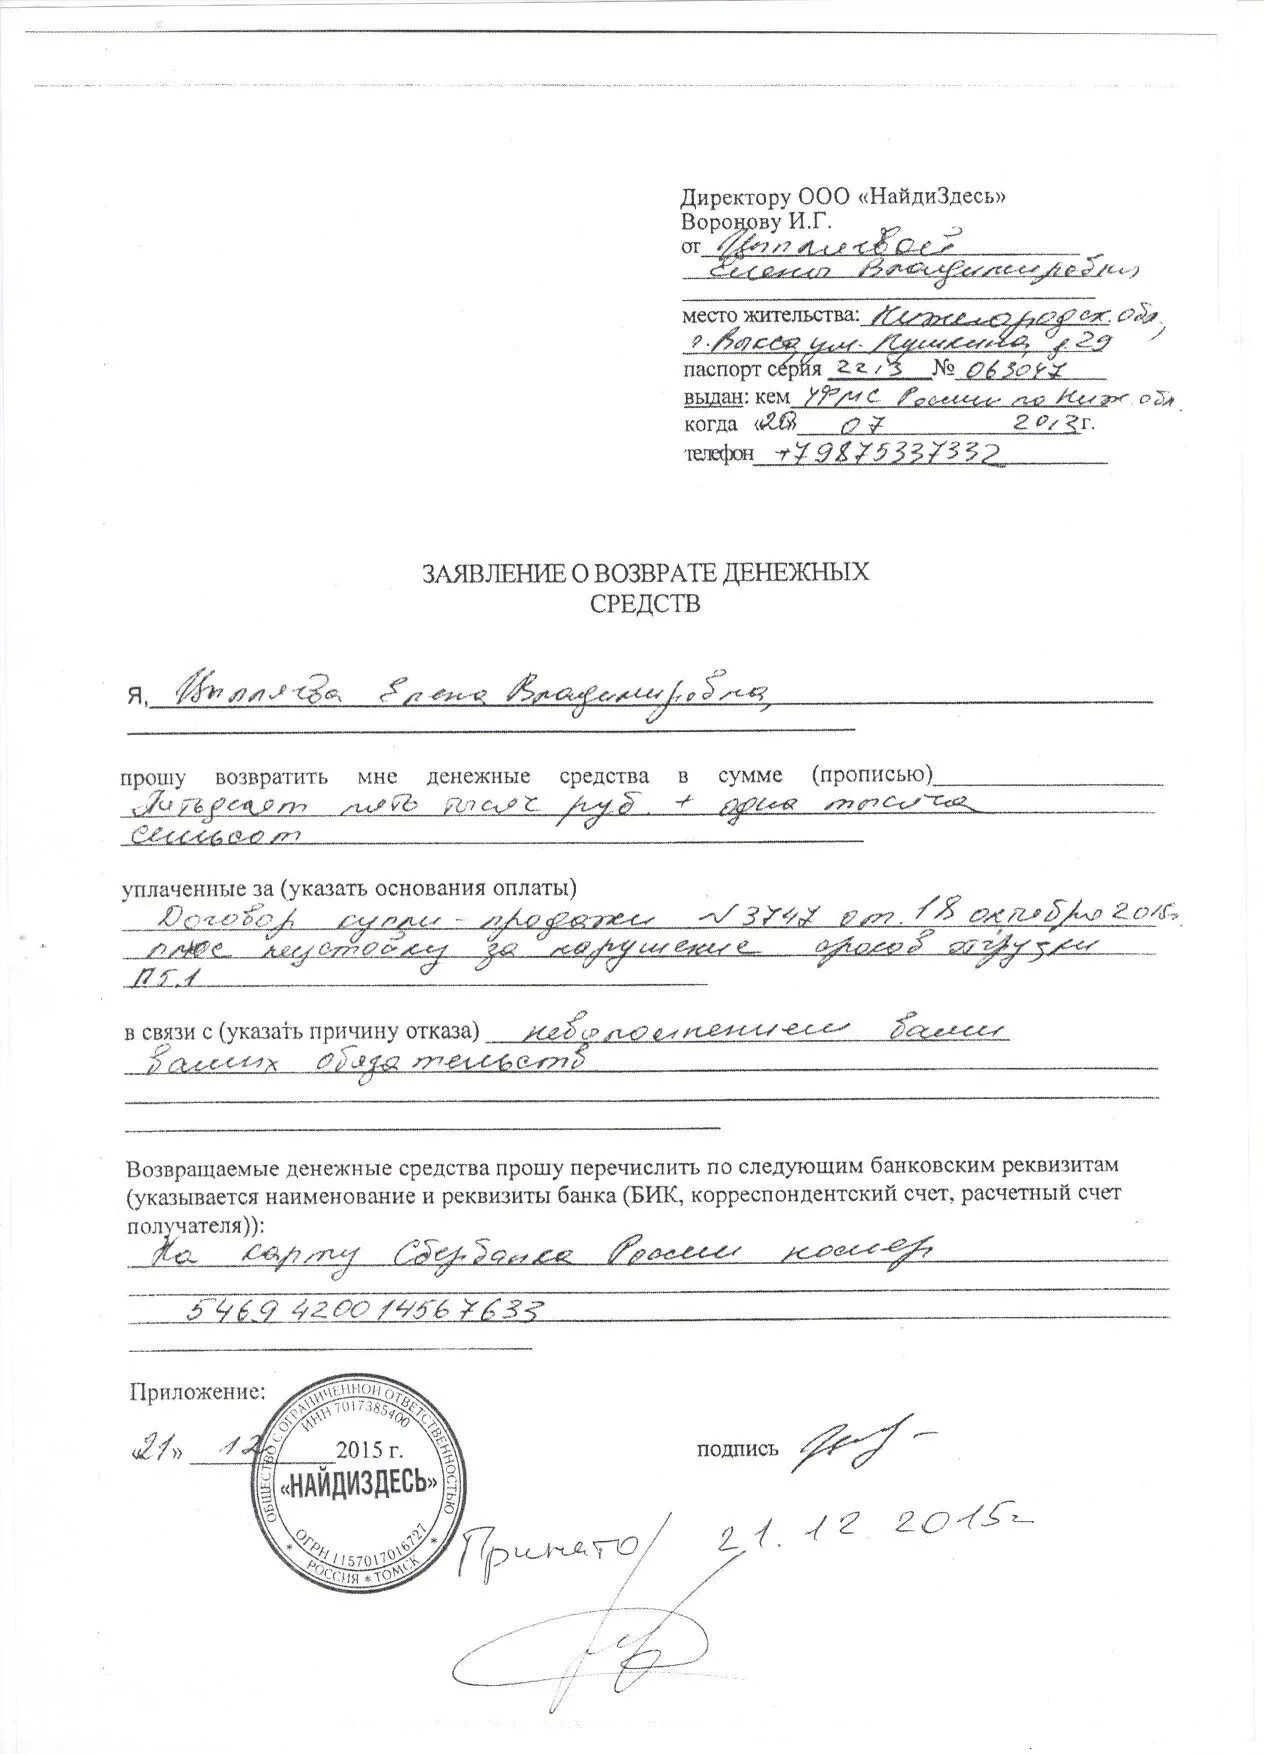 Директору ООО «НайдиЗдесь»
Воронову И.Г.
от Цыплявой
Елены Владимировны
место жительства: Нижегородск. обл.,
г. Выкса, ул. Пушкина, д 29
паспорт серия 2213 № 063047
выдан: кем УФМС России по Ниж. обл.
когда «20» 07 2013г.
телефон +79875337332
ЗАЯВЛЕНИЕ О ВОЗВРАТЕ ДЕНЕЖНЫХ
СРЕДСТВ
Я, Елена Владимировна,
прошу возвратить мне денежные средства в сумме (прописью)
Пятьдесят пять тысяч руб. + одна тысяча
семьсот
уплаченные за (указать основания оплаты)
Договор купли-продажи N 3747 от. 18 октября 2015г
плюс неустойку за нарушение сроков отгрузки
П 5.1
в связи с (указать причину отказа) невыполнением вами
ваших обязательств
Возвращаемые денежные средства прошу перечислить по следующим банковским реквизитам
(указывается наименование и реквизиты банка (БИК, корреспондентский счет, расчетный счет
получателя)):
На карту Сбербанка России номер
5469 4200 1456 7633
Приложение:
«21» 12 2015 г. подпись
ОБЩЕСТВО С ОГРАНИЧЕННОЙ ОТВЕТСТВЕННОСТЬЮ
ИНН 7017385400
«НАЙДИЗДЕСЬ»
ОГРН 1157017016727
* РОССИЯ * ТОМСК *
Принято 21.12.2015г